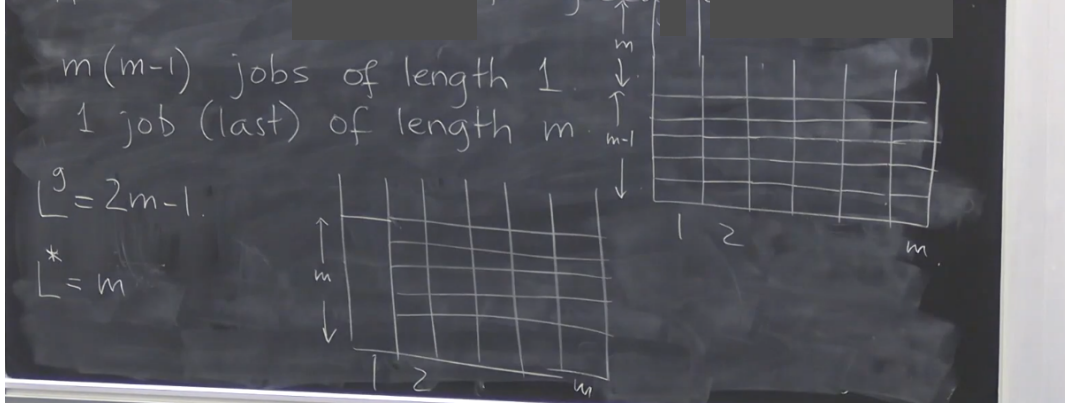 m(m-1) jobs of length 1.
1 job (last) of length m.
L^g = 2m-1.
L^* = m
m
1 2 m
m
m-1
1 2 m.